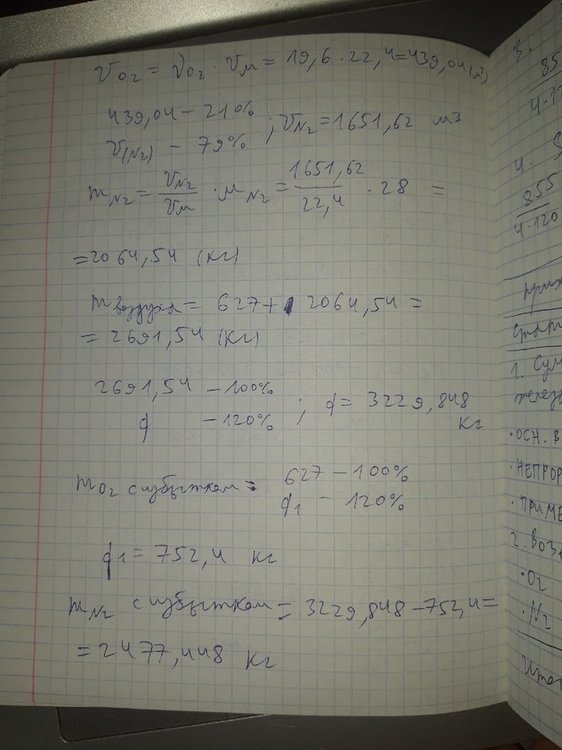 V_O2 = ν_O2 · V_M = 19,6 · 22,4 = 439,04 (м³)
439,04 – 21%
V(N2) – 79% ; V_N2 = 1651,62 м³
m_N2 = V_N2/V_M · M_N2 = 1651,62/22,4 · 28 =
= 2064,54 (кг)
m воздуха = 627 + 2064,54 =
= 2691,54 (кг)
2691,54 – 100%
ϕ – 120% ; ϕ = 3229,848 кг
m_O2 с избытком = 627 – 100%
ϕ1 – 120%
ϕ1 = 752,4 кг
m_N2 с избытком = 3229,848 – 752,4 =
= 2477,448 кг
3.
855
4·12
4.
855
4·120
прих
стат
1. Сум
желез
• ОСН. В
• НЕПРОР
• ПРИМЕ
2. ВОЗ
• O2
• N2
Итог